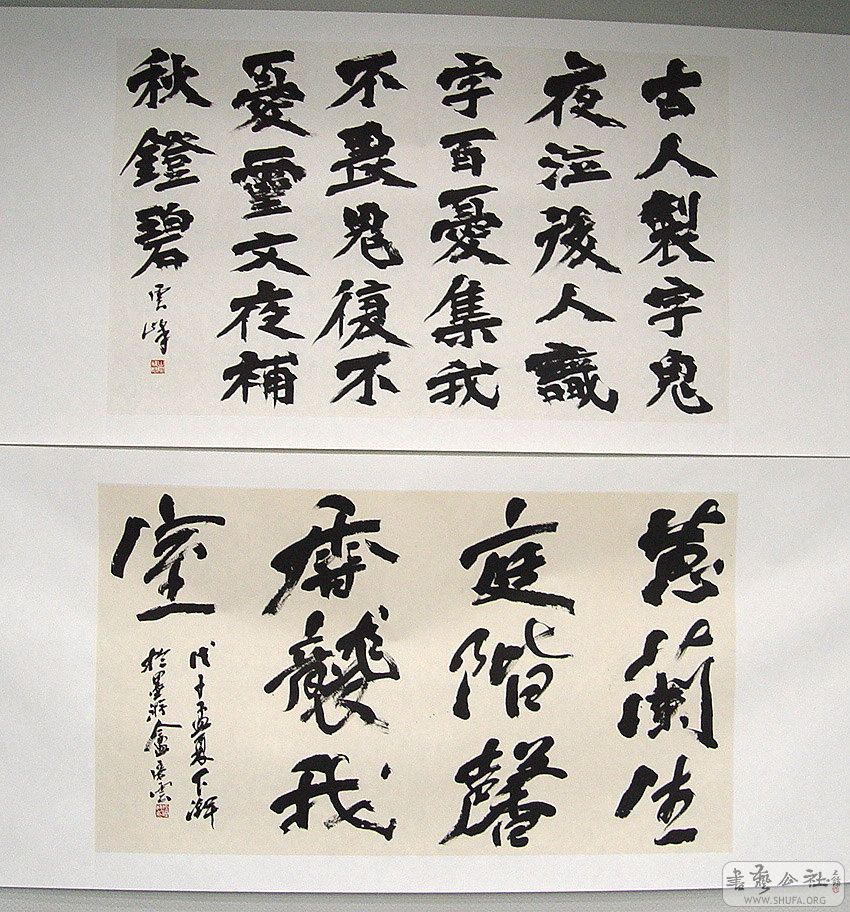 古人製字鬼
夜泣後人識
字百憂集我
不畏鬼復不
憂靈文夜補
秋鐙碧
雲峰
蕙蘭生
庭階馨
香襲我
室
戊子孟夏下澣
於墨盦雲
書藝公社
WWW.SHUFA.ORG